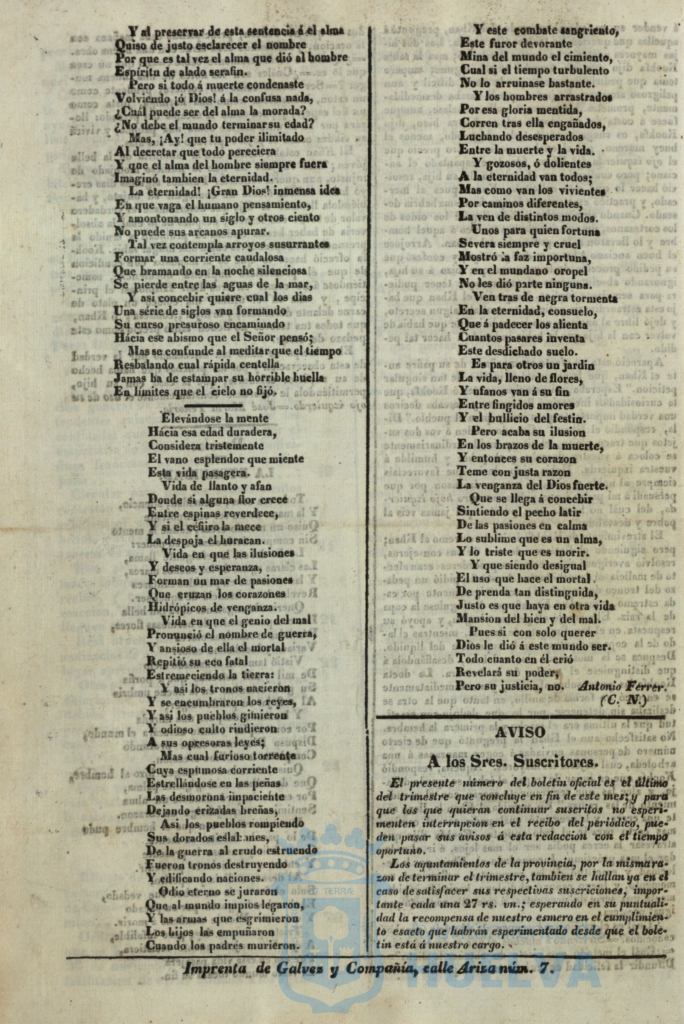 Y al preservar de esta sentencia á el alma
Quiso de justo esclarecer el nombre
Por que es tal vez el alma que dió al hombre
Espíritu de alado serafin.
Pero si todo á muerte condenaste
Volviendo ¡ó Dios! á la confusa nada,
¿Cuál puede ser del alma la morada?
¿No debe el mundo terminar su edad?
Mas, ¡Ay! que tu poder ilimitado
Al decretar que todo pereciera
Y que el alma del hombre siempre fuera
Imaginó tambien la eternidad.
La eternidad! ¡Gran Dios! inmensa idea
En que vaga el humano pensamiento,
Y amontonando un siglo y otros ciento
No puede sus arcanos apurar.
Tal vez contempla arroyos susurrantes
Formar una corriente caudalosa
Que bramando en la noche silenciosa
Se pierde entre las aguas de la mar,
Y asi concebir quiere cual los dias
Una série de siglos van formando
Su curso presuroso encaminado
Hácia ese abismo que el Señor pensó;
Mas se confunde al meditar que el tiempo
Resbalando cual rápida centella
Jamas ha de estampar su horrible huella
En límites que el cielo no fijó.
Elevándose la mente
Hácia esa edad duradera,
Considera tristemente
El vano esplendor que miente
Esta vida pasagera.
Vida de llanto y afan
Donde si alguna flor crece
Entre espinas reverdece,
Y si el céfiro la mece
La despoja el huracan.
Vida en que las ilusiones
Y deseos y esperanza,
Forman un mar de pasiones
Que cruzan los corazones
Hidrópicos de venganza.
Vida en que el genio del mal
Pronunció el nombre de guerra,
Y ansioso de ella el mortal
Repitió su eco fatal
Estremeciendo la tierra:
Y asi los tronos nacieron
Y se encumbraron los reyes,
Y asi los pueblos gimieron
Y odioso culto rindieron
A sus opresoras leyes;
Mas cual furioso torrente
Cuya espumosa corriente
Estrellándose en las peñas
Las desmorona impaciente
Dejando erizadas breñas,
Asi los pueblos rompiendo
Sus dorados eslabones,
De la guerra al crudo estruendo
Fueron tronos destruyendo
Y edificando naciones.
Odio eterno se juraron
Que al mundo impios legaron,
Y las armas que esgrimieron
Los hijos las empuñaron
Cuando los padres murieron.
Y este combate sangriento,
Este furor devorante
Mina del mundo el cimiento,
Cual si el tiempo turbulento
No lo arruinase bastante.
Y los hombres arrastrados
Por esa gloria mentida,
Corren tras ella engañados,
Luchando desesperados
Entre la muerte y la vida.
Y gozosos, ó dolientes
A la eternidad van todos;
Mas como van los vivientes
Por caminos diferentes,
La ven de distintos modos.
Unos para quien fortuna
Severa siempre y cruel
Mostró la faz importuna,
Y en el mundano oropel
No les dió parte ninguna.
Ven tras de negra tormenta
En la eternidad, consuelo,
Que á padecer los alienta
Cuantos pasares inventa
Este desdichado suelo.
Es para otros un jardin
La vida, lleno de flores,
Y ufanos van á su fin
Entre fingidos amores
Y el bullicio del festin.
Pero acaba su ilusion
En los brazos de la muerte,
Y entonces su corazon
Teme con justa razon
La venganza del Dios fuerte.
Que se llega á concebir
Sintiendo el pecho latir
De las pasiones en calma
Lo sublime que es un alma,
Y lo triste que es morir.
Y que siendo desigual
El uso que hace el mortal
De prenda tan distinguida,
Justo es que haya en otra vida
Mansion del bien y del mal.
Pues si con solo querer
Dios le dió á este mundo ser.
Todo cuanto en él crió
Revelará su poder,
Pero su justicia, no. Antonio Ferrer.
(C. N.)
AVISO
A los Sres. Suscritores.
El presente número del boletin oficial es el último
del trimestre que concluye en fin de este mes; y para
que los que quieran continuar suscritos no esperi-
menten interrupcion en el recibo del periódico, pue-
den pasar sus avisos á esta redaccion con el tiempo
oportuno.
Los ayuntamientos de la provincia, por la misma ra-
zon de terminar el trimestre, tambien se hallan ya en el
caso de satisfacer sus respectivas suscriciones, impor-
tante cada una 27 rs. vn.; esperando en su puntuali-
dad la recompensa de nuestro esmero en el cumplimien-
to esacto que habrán esperimentado desde que el bole-
tin está á nuestro cargo.
Imprenta de Galvez y Compañía, calle Ariza núm. 7.
HUELVA